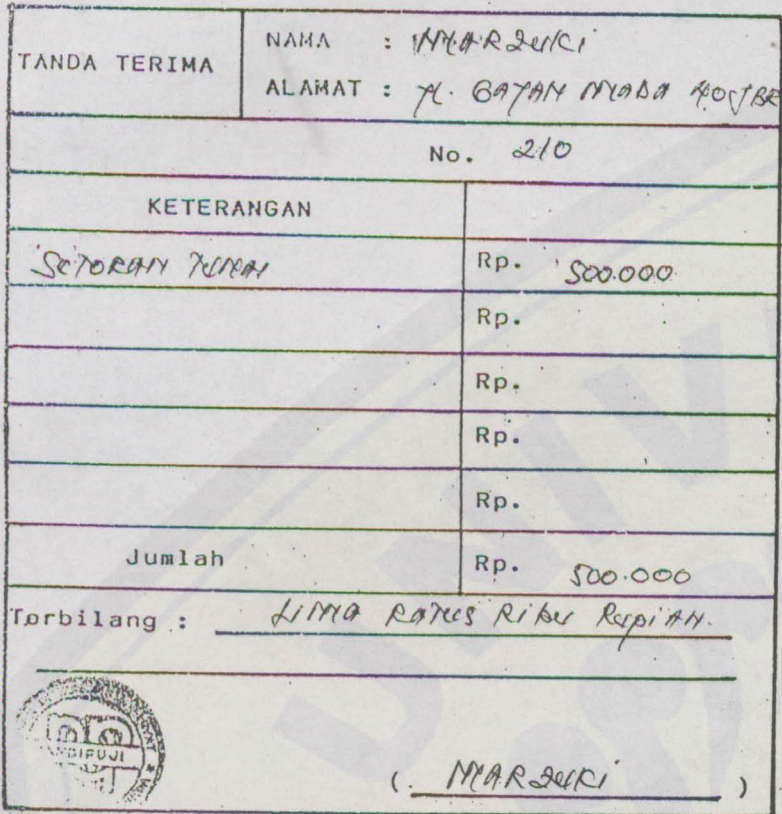 TANDA TERIMA
NAMA : MARZUKI
ALAMAT : Jl. GAJAH MADA 40 JBR
No. 210
KETERANGAN
SETORAN TUNAI Rp. 500.000
Rp.
Rp.
Rp.
Rp.
Jumlah Rp. 500.000
Terbilang : LIMA RATUS RIBU RUPIAH.
( MARZUKI )